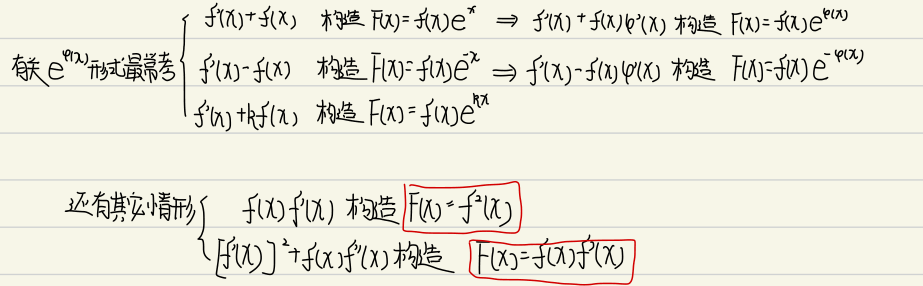 f'(x)+f(x) 构造 F(x)=f(x)eˣ ⇒ f'(x)+f(x)φ'(x) 构造 F(x)=f(x)e^{φ(x)}
有关 e^{φ(x)} 形式最常考 { f'(x)-f(x) 构造 F(x)=f(x)e^{-x} ⇒ f'(x)-f(x)φ'(x) 构造 F(x)=f(x)e^{-φ(x)}
f'(x)+kf(x) 构造 F(x)=f(x)e^{kx}
还有其它情形 { f(x)f'(x) 构造 F(x)=f²(x)
[f'(x)]²+f(x)f''(x) 构造 F(x)=f(x)f'(x)